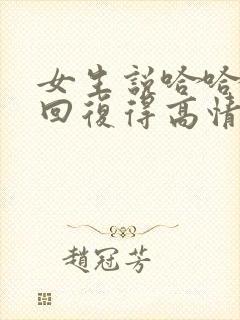 女生說哈哈
回復得高情
趙冠芳